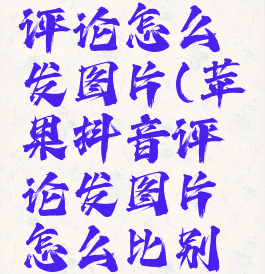 评论怎么
发图片(苹
果抖音评
论发图片
怎么比别